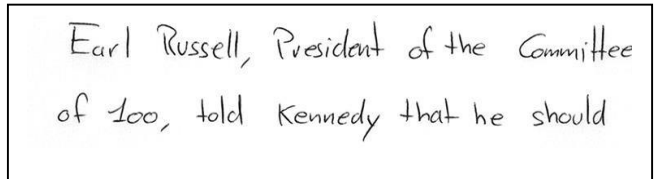 Earl Russell, President of the Committee
of 100, told Kennedy that he should